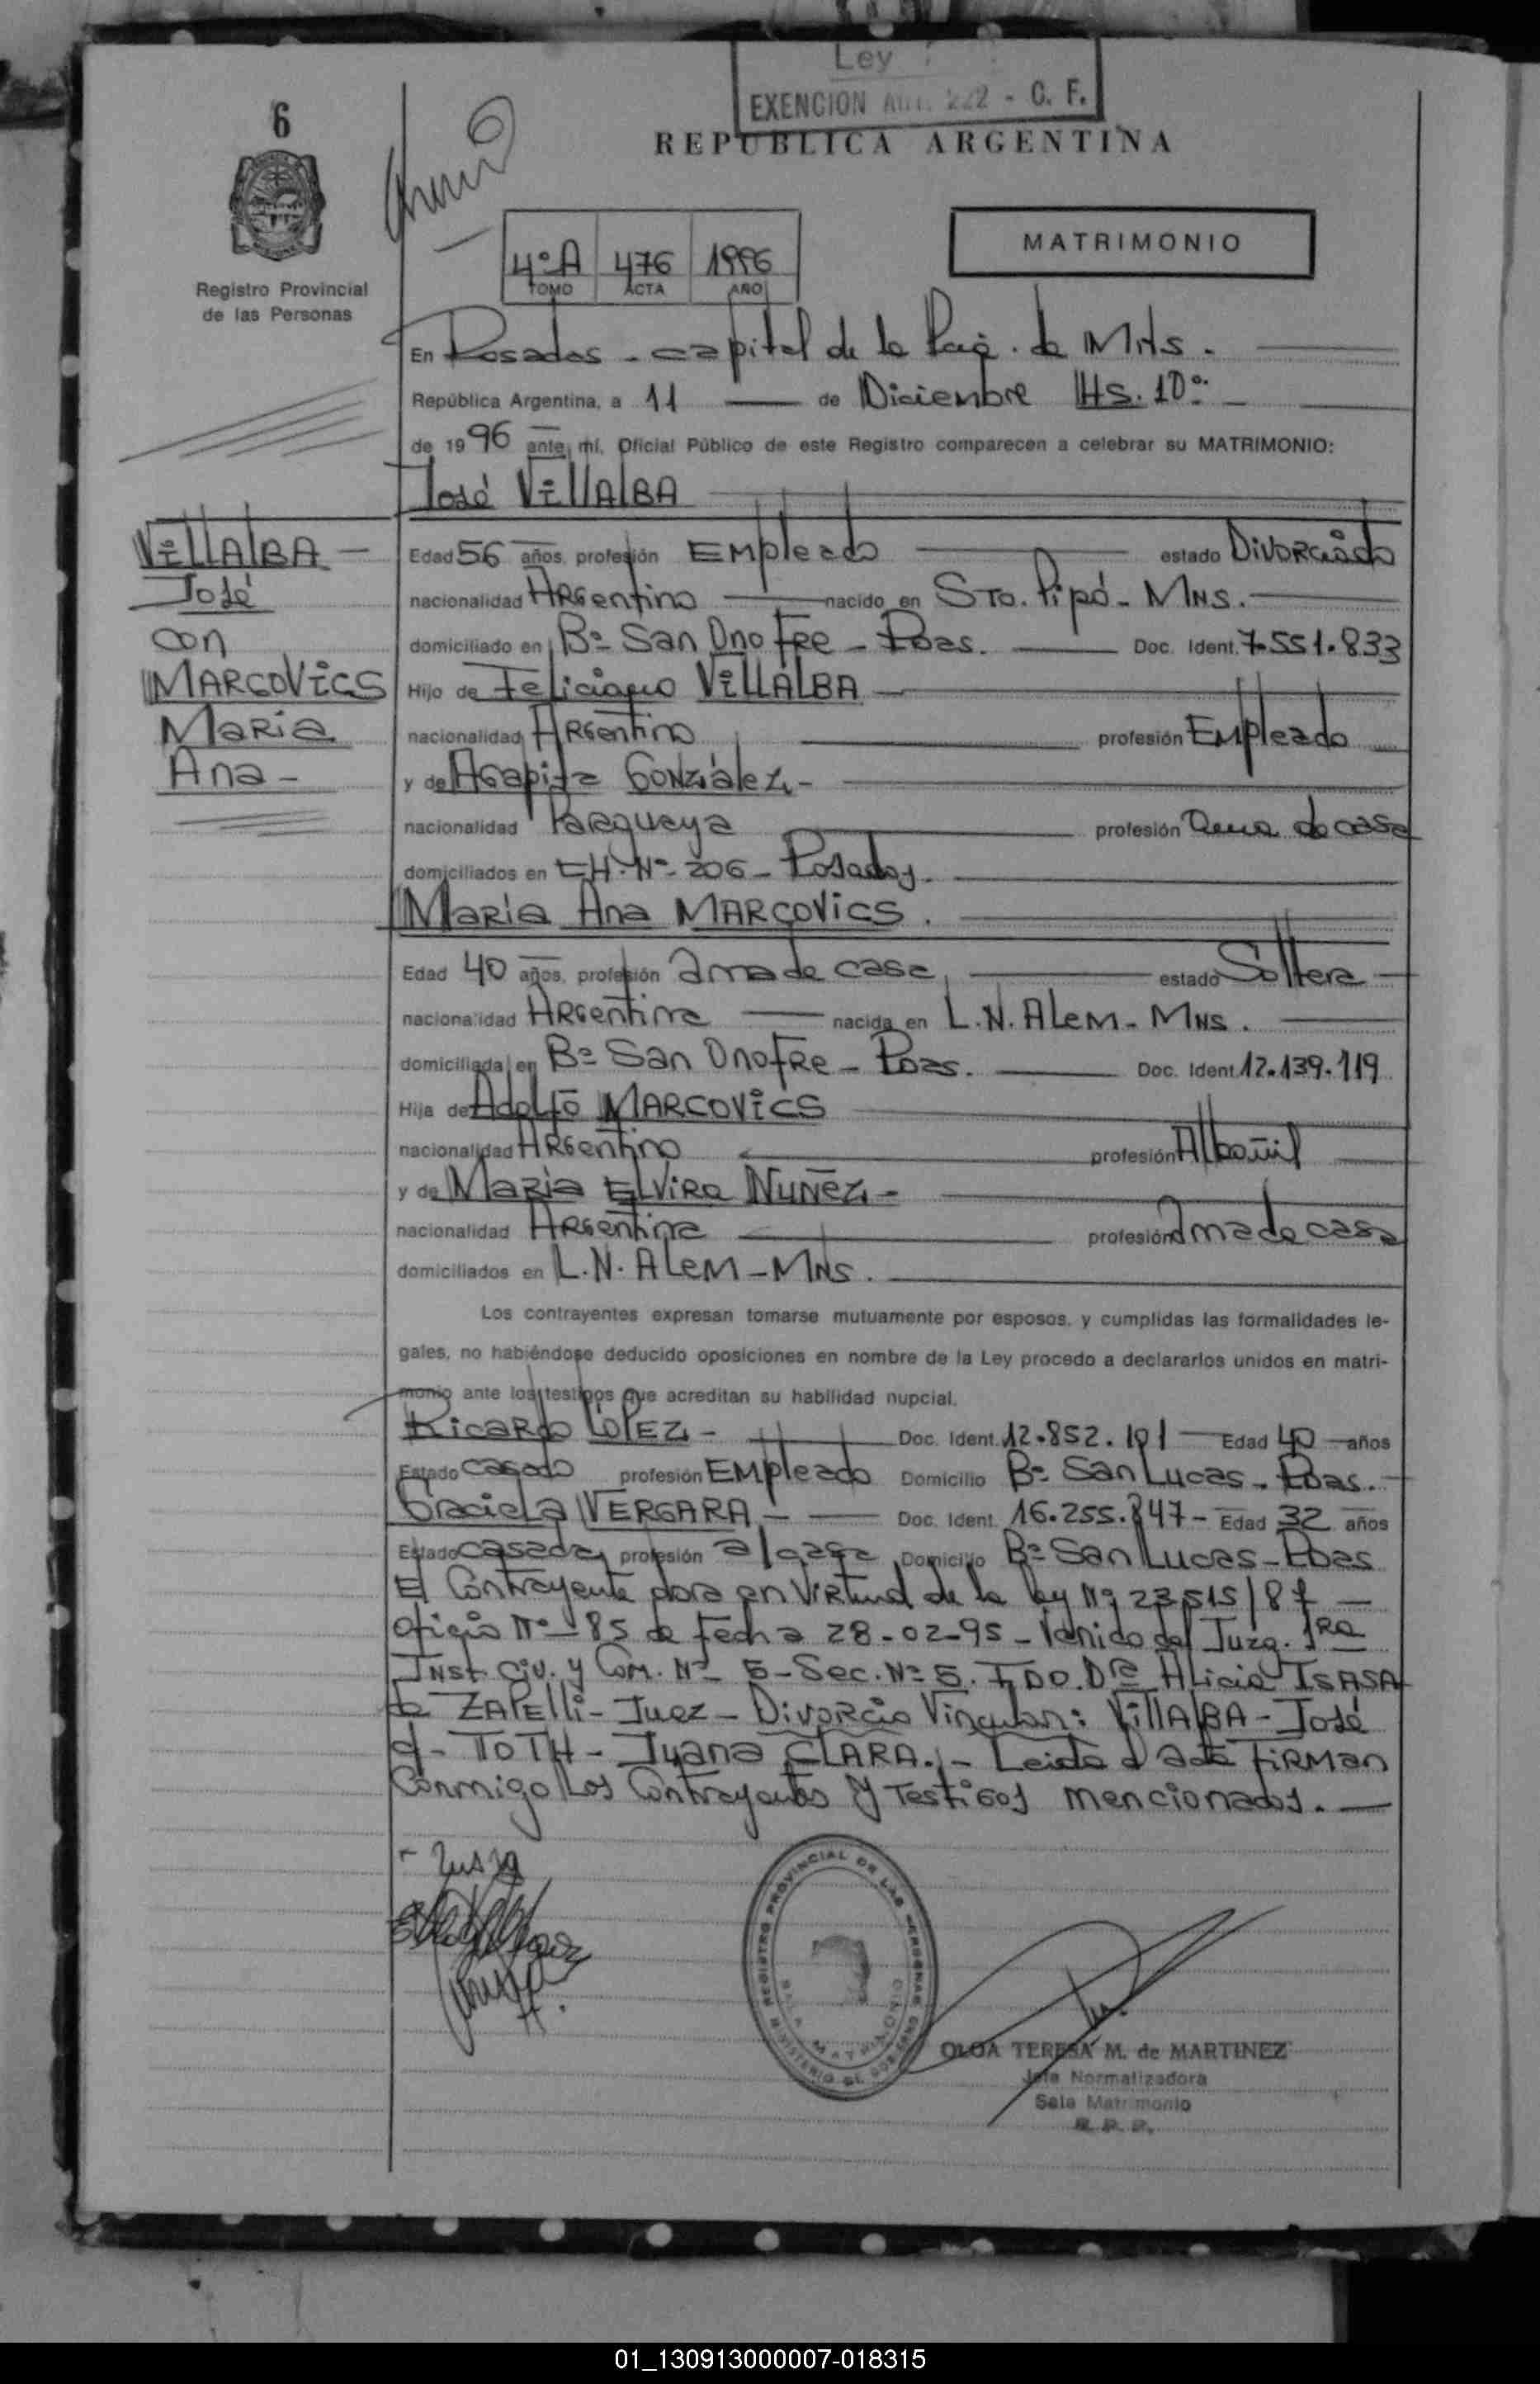 Ley
EXENCION Art. 222 - C. F.
6
REPUBLICA ARGENTINA
MATRIMONIO
4ºA 476 1996
TOMO ACTA AÑO
Registro Provincial
de las Personas
En Posadas - capital de la de Mns. -
República Argentina, a 11 de Diciembre HS. 10:
de 1996 ante mí, Oficial Público de este Registro comparecen a celebrar su MATRIMONIO:
José VILLALBA
VILLALBA -
José
con
MARCOVICS
Maria
Ana -
Edad 56 años, profesión Empleado estado Divorciado
nacionalidad Argentino nacido en Sto. Pipó - Mns.
domiciliado en Bº San Onofre - Pdas. Doc. Ident. 7.551.833
Hijo de Feliciano VILLALBA
nacionalidad Argentino profesión Empleado
y de Agapita González -
nacionalidad Paraguaya profesión de casa
domiciliados en CH. Nº 206 - Posadas.
Maria Ana MARCOVICS.
Edad 40 años, profesión ama de casa estado Soltera
nacionalidad Argentina nacida en L.N. Alem - Mns.
domiciliada en Bº San Onofre - Pdas. Doc. Ident. 12.139.119
Hija de Adolfo MARCOVICS
nacionalidad Argentino profesión Albañil
y de Maria Elvira Nuñez -
nacionalidad Argentina profesión Ama de casa
domiciliados en L.N. Alem - Mns.
Los contrayentes expresan tomarse mutuamente por esposos, y cumplidas las formalidades le-
gales, no habiéndose deducido oposiciones en nombre de la Ley procedo a declararlos unidos en matri-
monio ante los testigos que acreditan su habilidad nupcial.
Ricardo LOPEZ - Doc. Ident. 12.852.101 Edad 40 años
Estado casado profesión Empleado Domicilio Bº San Lucas - Pdas.
Graciela VERGARA - Doc. Ident. 16.255.847 - Edad 32 años
Estado casada profesión Domicilio Bº San Lucas - Pdas
El Contrayente en virtud de la ley Nº 23515/87 -
Oficio Nº 85 de fecha 28-02-95 - Venido del Juzg. 1ra
Inst. Civ. y Com. Nº 5 - Sec. Nº 5. FDO. Dra Alicia ISASA
de ZAPELLI - Juez - Divorcio Vincular: VILLALBA - José
c/ - TOTH - Juana CLARA. - Leida el acta firman
Conmigo los Contrayentes y testigos mencionados. -
REGISTRO PROVINCIAL DE LAS PERSONAS
SALA MATRIMONIO
MINISTERIO DE GOBIERNO
OLGA TERESA M. de MARTINEZ
Jefa Normalizadora
Sala Matrimonio
R. P. P.
01_130913000007-018315